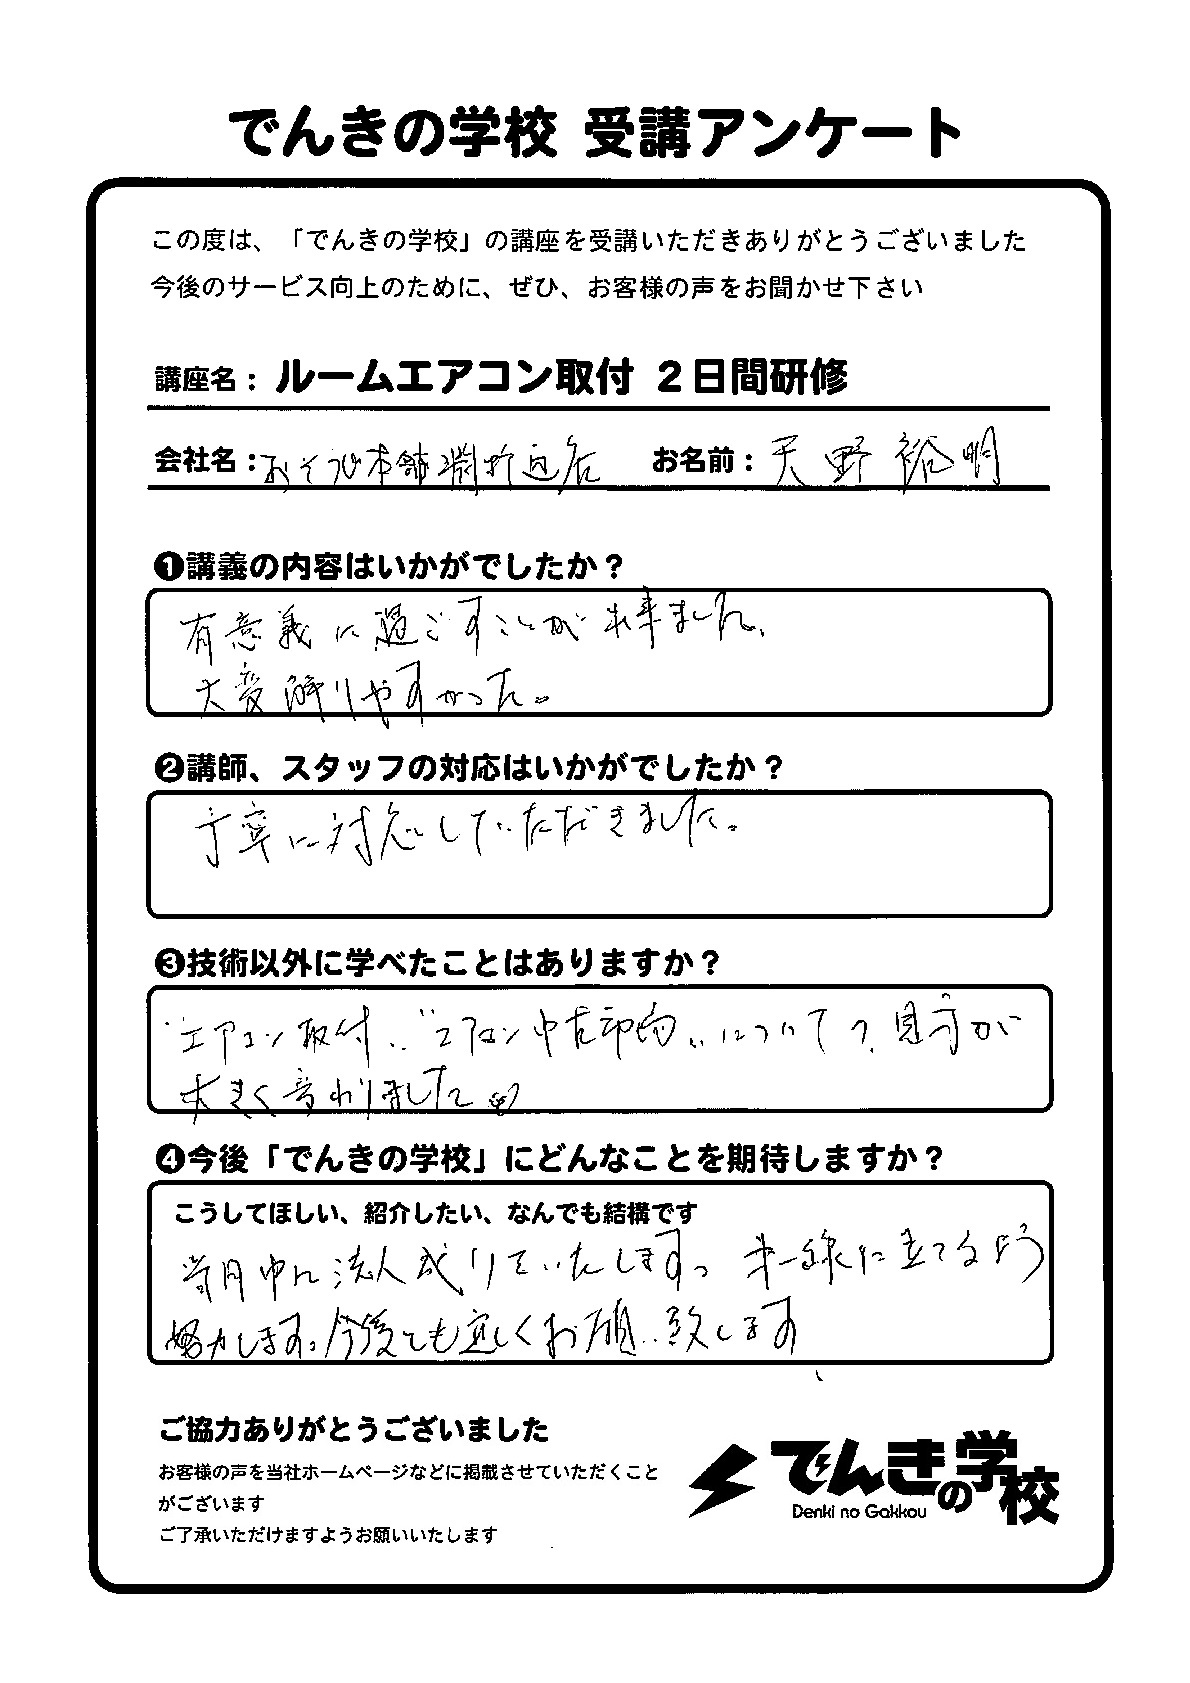 でんきの学校 受講アンケート
この度は、「でんきの学校」の講座を受講いただきありがとうございました
今後のサービス向上のために、ぜひ、お客様の声をお聞かせ下さい
講座名： ルームエアコン取付 2日間研修
会社名：おそうじ本舗淵野辺店 お名前：天野裕明
❶講義の内容はいかがでしたか？
有意義に過ごすことが出来ました。
大変解りやすかった。
❷講師、スタッフの対応はいかがでしたか？
丁寧に対応していただきました。
❸技術以外に学べたことはありますか？
"エアコン取付" "エアコン中古市場" についての見方が
大きく変わりました
❹今後「でんきの学校」にどんなことを期待しますか？
こうしてほしい、紹介したい、なんでも結構です
当月中に法人成りをいたします。第一線に立てるよう
努力します。今後とも宜しくお願い致します
ご協力ありがとうございました
お客様の声を当社ホームページなどに掲載させていただくこと
がございます
ご了承いただけますようお願いいたします
でんきの学校
Denki no Gakkou